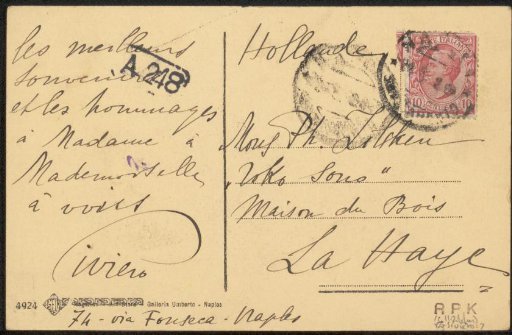 les meilleurs
souvenirs
et les hommages
à Madame à
Mademoiselle
à vous
Hollande
A. 248
10 10
Mons Ph. Zilcken
Maison du Bois
La Haye
4924
Galleria Umberto - Naples
74 - via Fonseca - Naples
R P K